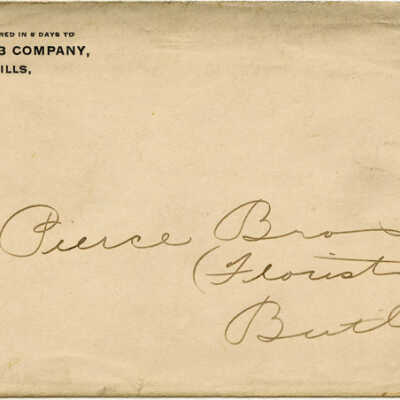 RED IN 5 DAYS TO
B COMPANY,
ILLS,
Pierce Bros
(Florist
Butl